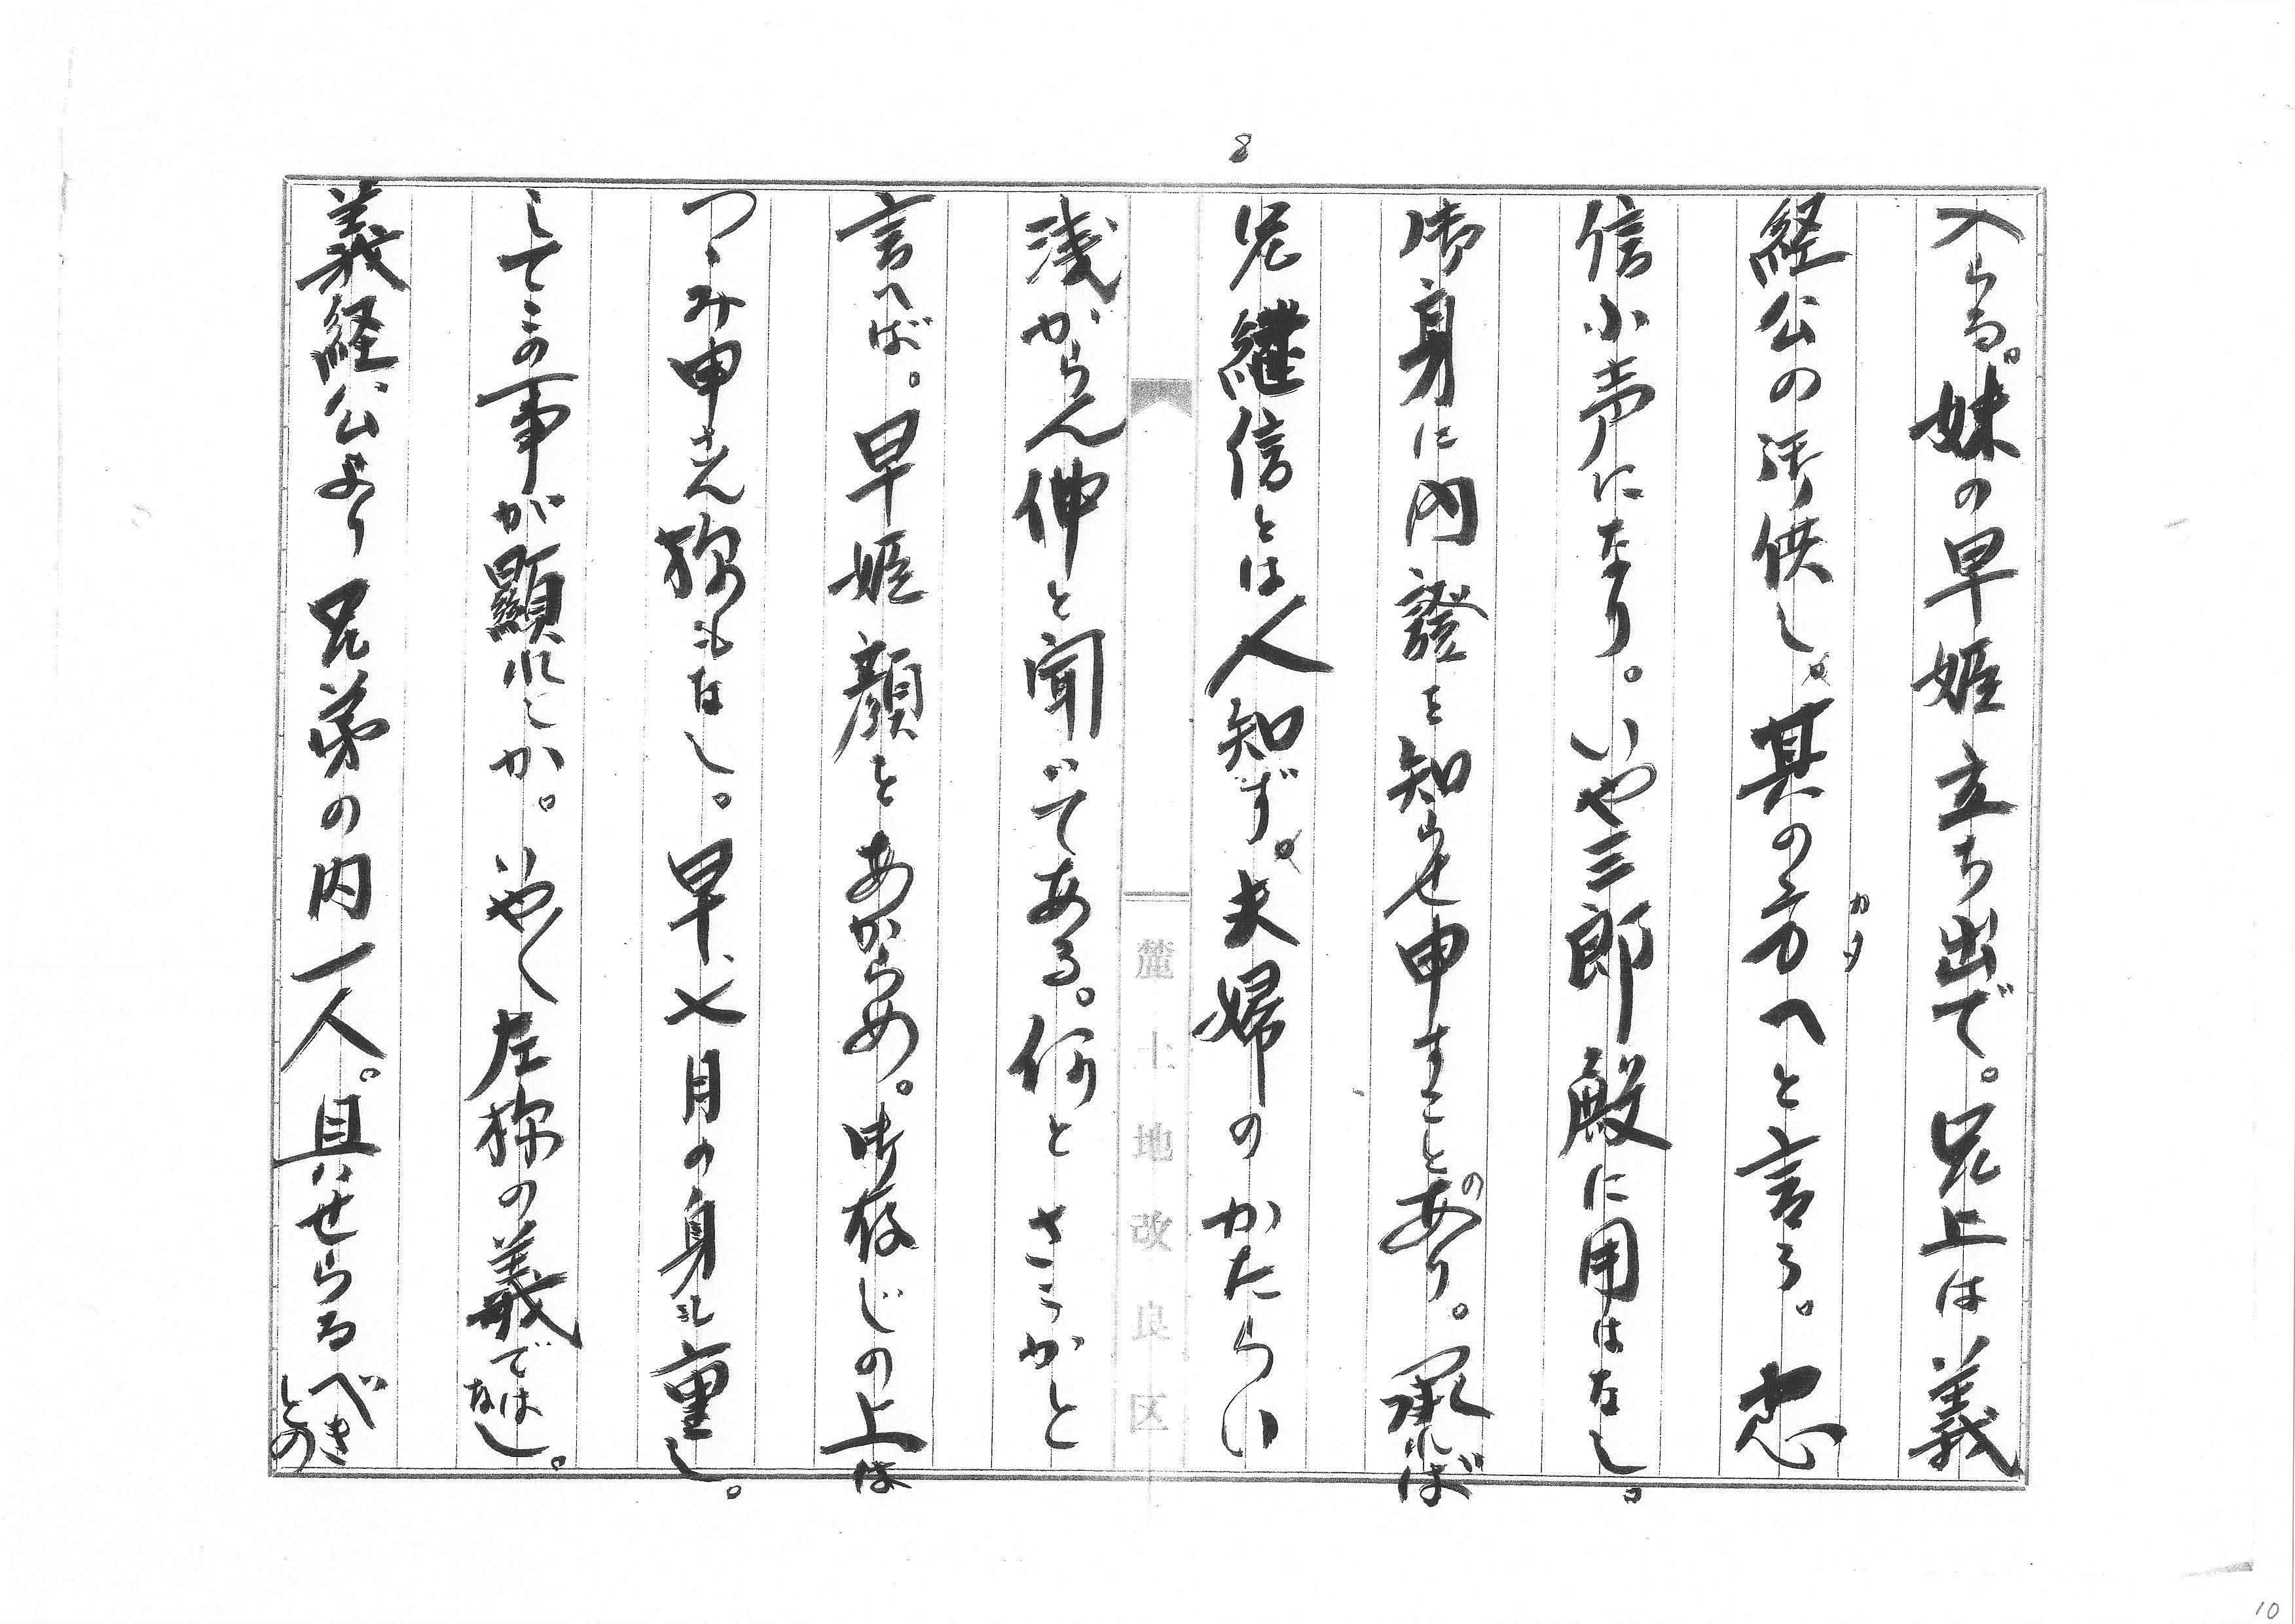 8
入らる。妹の早姫立ち出で。兄上は義
経公の御供し。其の方へと言ふ。忠
カタ
信小声になり。いや三郎殿に用はなし。
御身に内證を知らせ申すことのあり。承れば
兄継信とは人知ず。夫婦のかたらい
浅からん仲と聞いてある。何とさうかと
言へば。早姫顔をあからめ。御存じの上は
つゝみ申さん様もなし。早、七月の身も重し。
してこの事が顕れしか。いや〳〵左様の義ではなし。
義経公より兄弟の内一人。具せらるべきとの
麓土地改良区
10